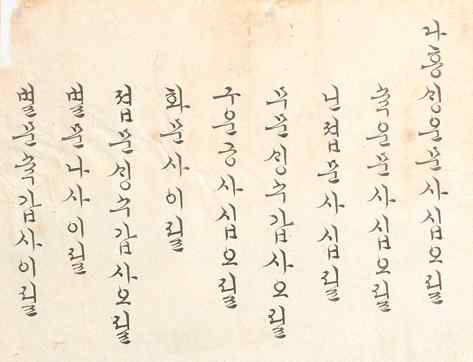 다홍싱운문사십오필
숙운문사십오필
난졉문사십필
수문싱수갑사오필
구운공사십오필
화문사이필
졉문싱수갑사오필
별문나사이필
별문숙갑사이필